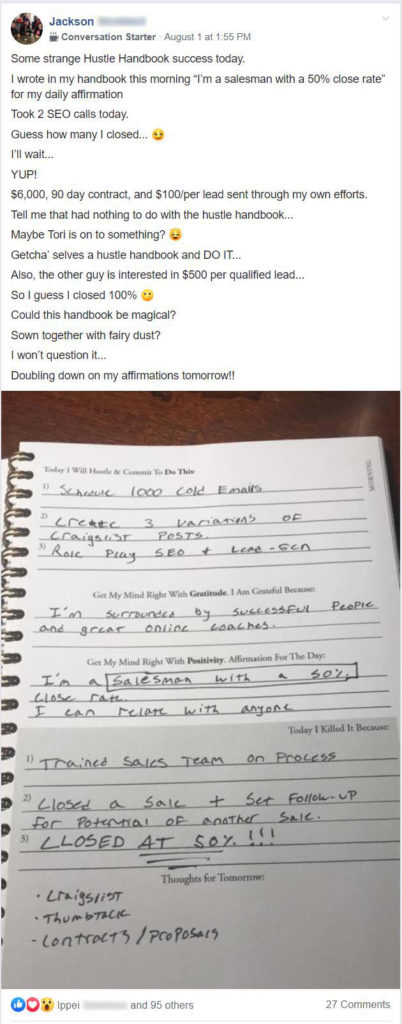 Jackson
Conversation Starter · August 1 at 1:55 PM
Some strange Hustle Handbook success today.
I wrote in my handbook this morning "I'm a salesman with a 50% close rate"
for my daily affirmation
Took 2 SEO calls today.
Guess how many I closed... 😉
I'll wait...
YUP!
$6,000, 90 day contract, and $100/per lead sent through my own efforts.
Tell me that had nothing to do with the hustle handbook...
Maybe Tori is on to something? 😪
Getcha' selves a hustle handbook and DO IT...
Also, the other guy is interested in $500 per qualified lead...
So I guess I closed 100% 😶
Could this handbook be magical?
Sown together with fairy dust?
I won't question it...
Doubling down on my affirmations tomorrow!!
MORNING
Today I Will Hustle & Commit To Do This
1) Schedule 1000 Cold Emails
2) Create 3 variations of
Craigslist Posts.
3) Role Play SEO + Lead-Gen
Get My Mind Right With Gratitude. I Am Grateful Because:
I'm surrounded by successful people
and great online coaches.
Get My Mind Right With Positivity. Affirmation For The Day:
I'm a Salesman with a 50%
Close rate
I can relate with anyone
Today I Killed It Because:
1) Trained Sales Team on Process
2) Closed a Sale + Set Follow-up
For Potential of another Sale.
3) CLOSED AT 50% !!!
Thoughts for Tomorrow:
· Craigslist
· Thumbtack
- Contracts / Proposals
Ippei
and 95 others
27 Comments